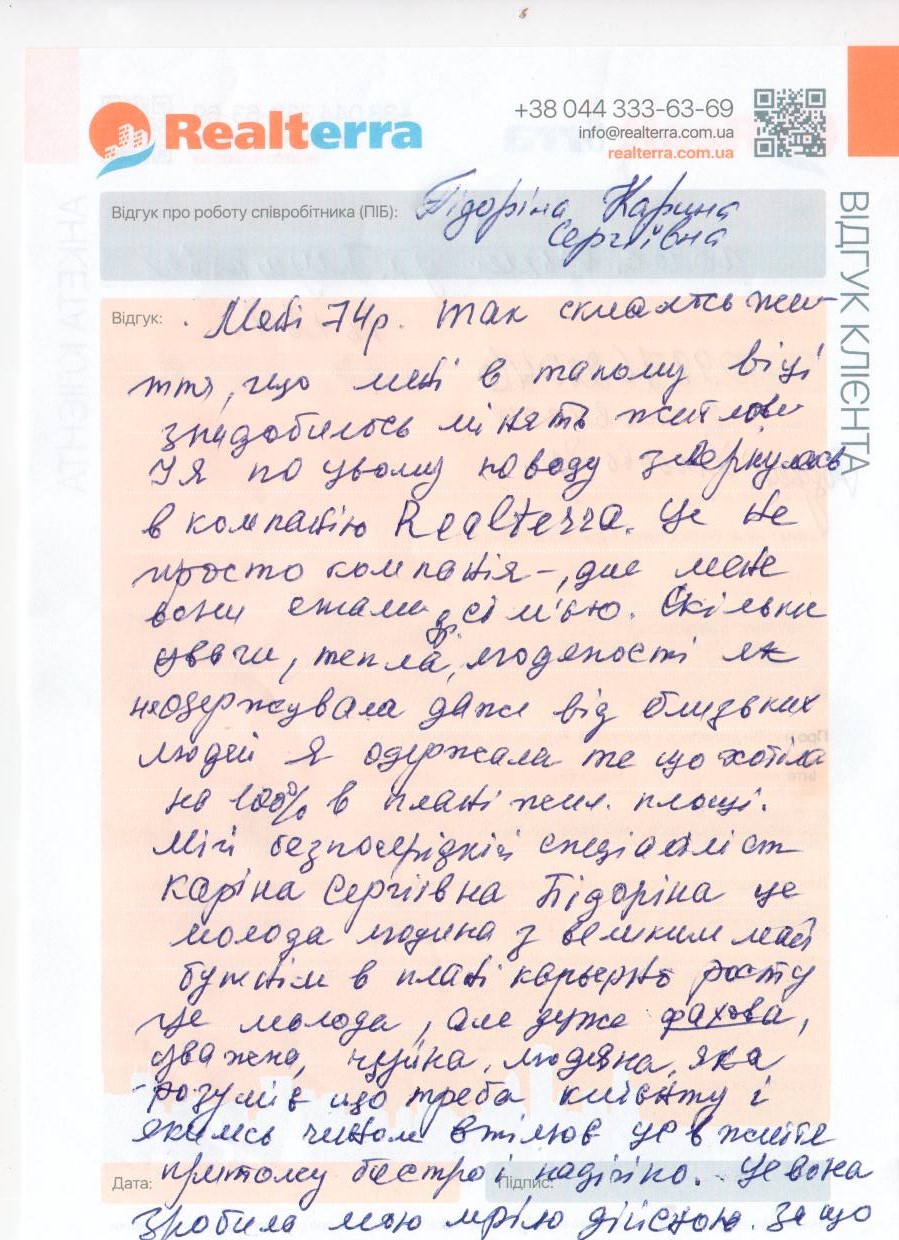 Realterra
+38 044 333-63-69
info@realterra.com.ua
realterra.com.ua
ВІДГУК КЛІЄНТА
Відгук про роботу співробітника (ПІБ): Підоріна Карина
Сергіївна
Відгук: Мені 74р. Так склалось жит
тя, що мені в такому віці
знадобилось мінять житлове
І я по цьому поводу звернулась
в компанію Realterra. Це не
просто компанія –, для мене
вони стали сім'ею. Скільки
уваги, тепла, людяності я
не одержувала даже від близьких
людей Я одержала те що хотіла
на 100% в плані жил. площі.
Мій безпосерідній спеціаліст
Каріна Сергіївна Підоріна це
молода людина з великим май
бутнім в плані карьерно росту
Це молода, але дуже фахова,
уважна, чуйна, людяна, яка
розуміє що треба клієнту і
якимсь чином втілює це в життє
притому бастро і надійно. Це вона
Дата:
Підпис:
зробила мою мрію дійсною. За що